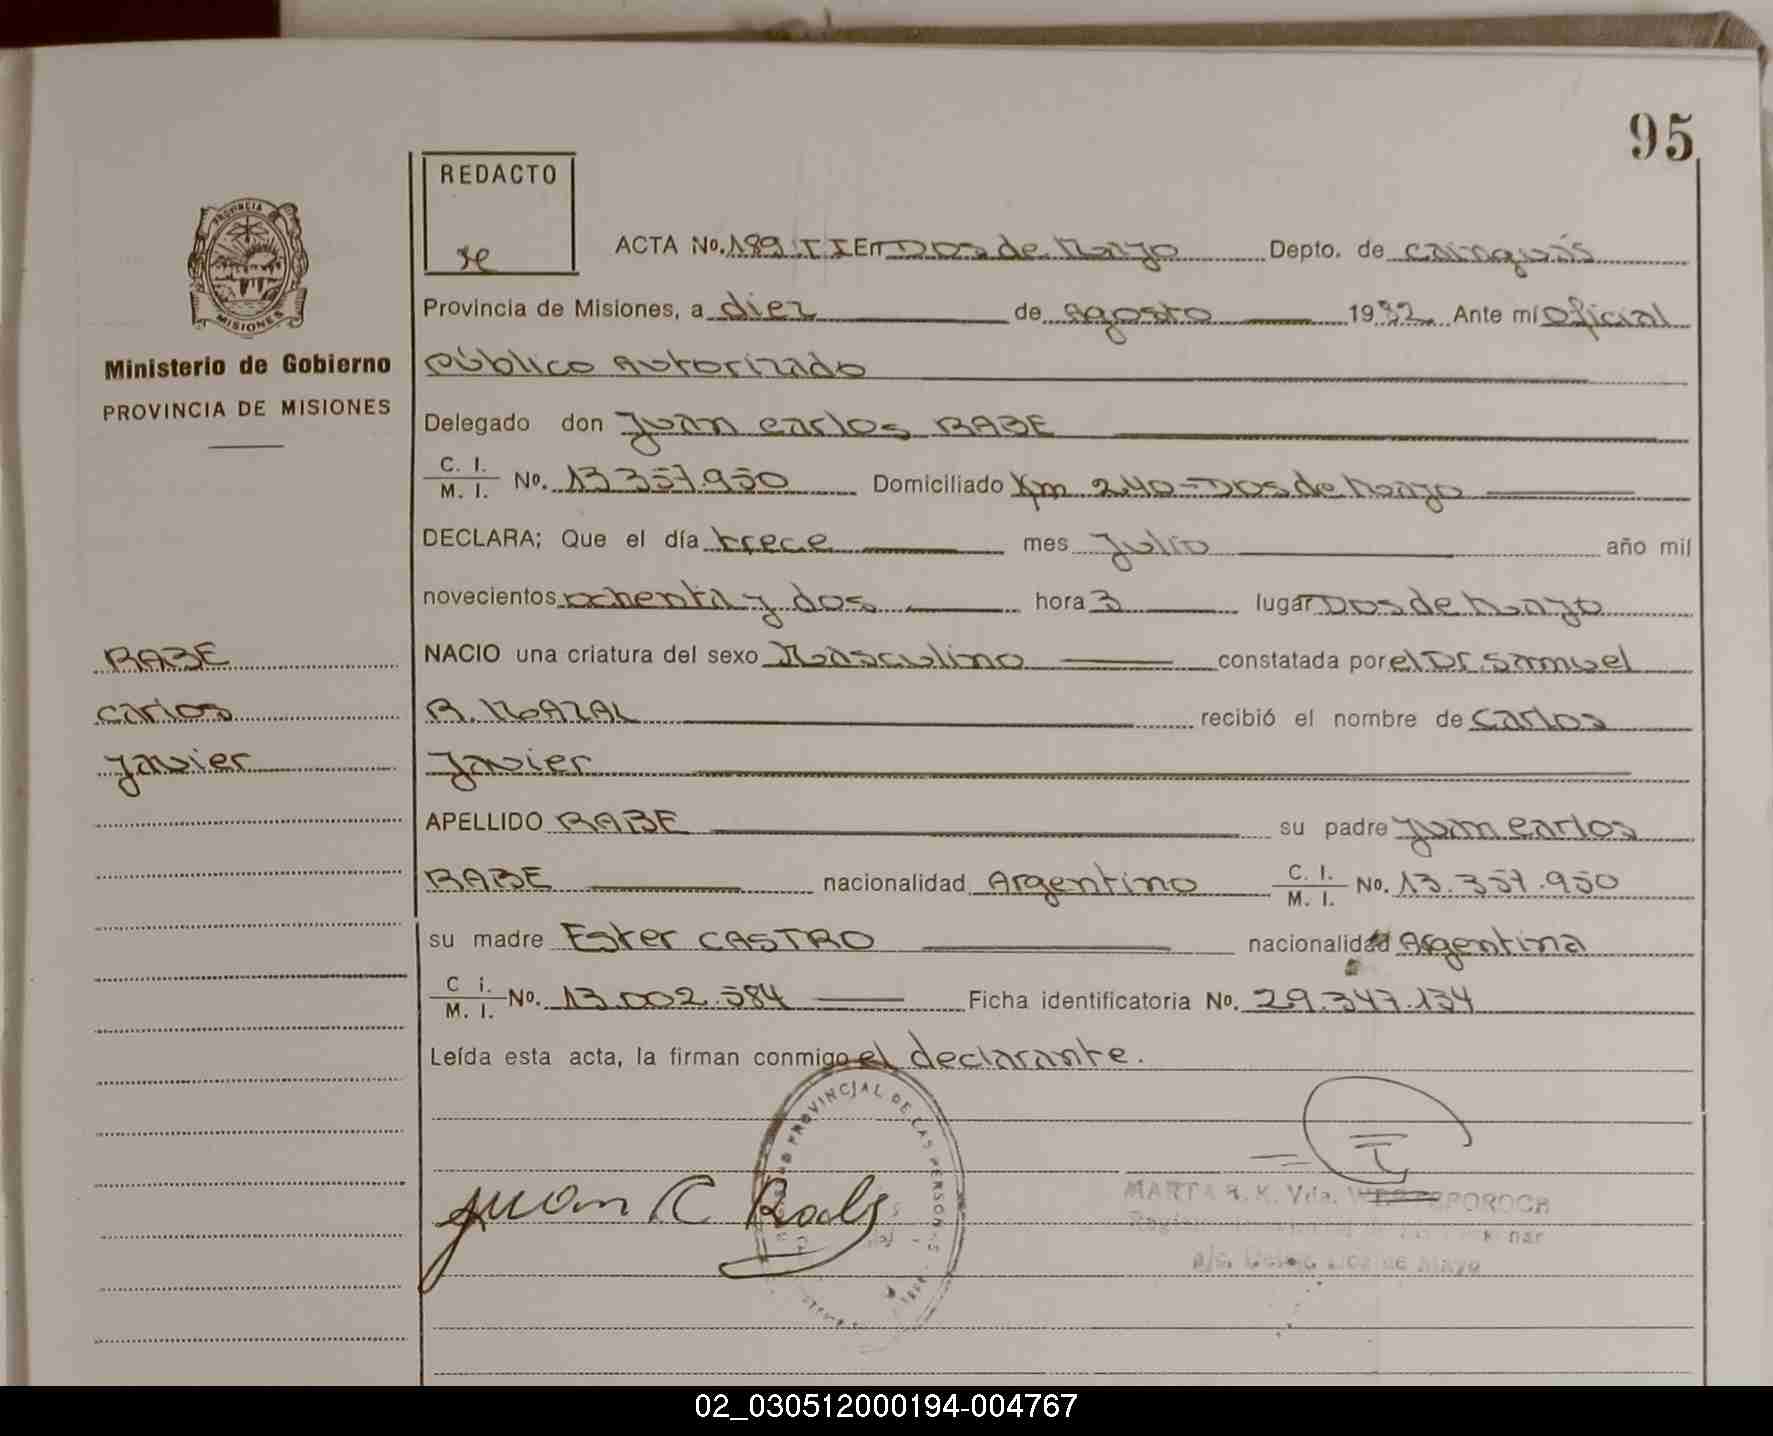 95
REDACTO
ACTA No. 189 TI En Dos de Mayo Depto. de cainguás
PROVINCIA
MISIONES
Provincia de Misiones, a diez de agosto 1982 Ante mí oficial
Ministerio de Gobierno
público autorizado
PROVINCIA DE MISIONES
Delegado don Juan carlos RABE
C. I.
M. I. No. 13357.950 Domiciliado Km 240-Dos de Mayo
DECLARA; Que el día trece mes Julio año mil
novecientos ochenta y dos hora 3 lugar Dos de Mayo
RABE
NACIO una criatura del sexo Masculino constatada por el Dr. Samuel
carlos
recibió el nombre de carlos
Javier
Javier
APELLIDO RABE su padre Juan carlos
RABE nacionalidad Argentino C. I. M. I. No. 13.357.950
su madre Ester CASTRO nacionalidad Argentina
C i. M. I. No. 13.002.584 Ficha identificatoria No. 29.347.134
Leída esta acta, la firman conmigo el declarante.
PROVINCIAL DE LAS PERSONAS
Juan C
MARTA Vda.
02_030512000194-004767